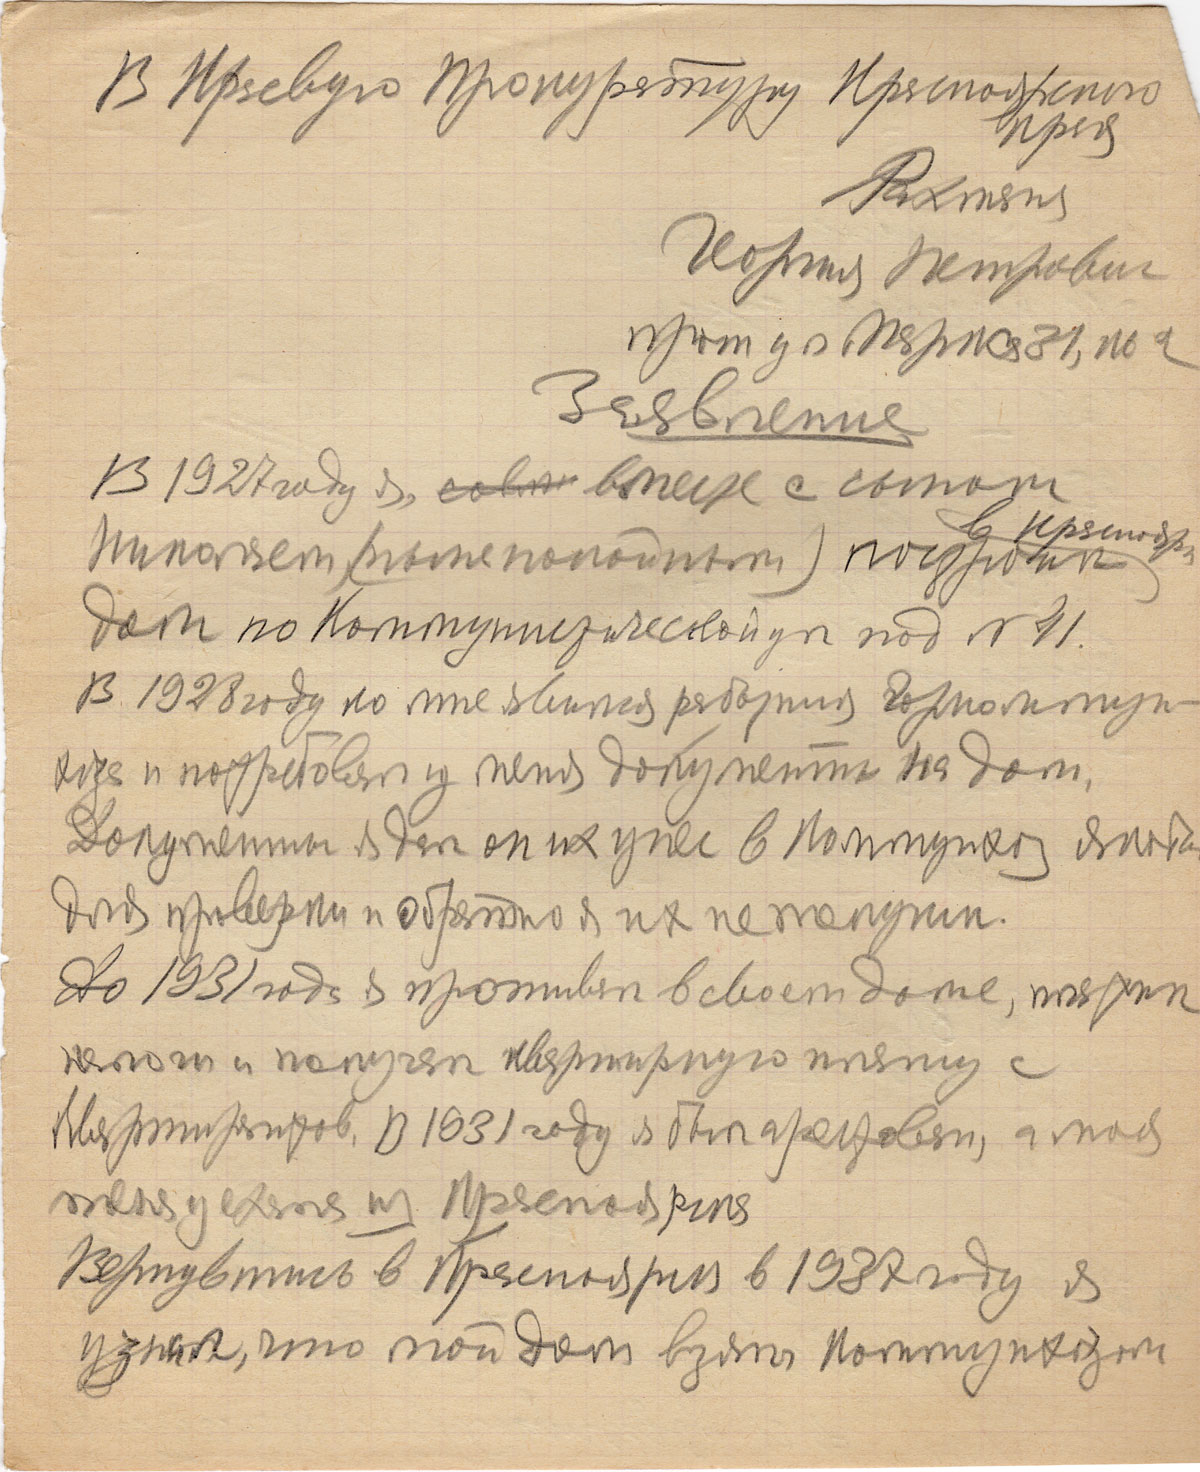 В Краевую Прокуратуру Красноярского
края
Рахмана
Петрович
прож ул. Маркса 31, кв 2
Заявление
В 1927 году я, вместе с сыном
Николаем (ныне покойным) построили
в Краснояр
дом по Коммунистической ул под № 41.
В 1928 году ко мне явился работник Горкоммун-
хоза и потребовал у меня документы на дом,
Документы я дал он их унес в Коммунхоз якобы
для проверки и обратно я их не получил.
До 1931 года я проживал в своем доме, платил
налоги и получал квартирную плату с
квартирантов. В 1931 году я был арестован, а моя
жена уехала из Красноярска
Вернувшись в Красноярск в 1937 году я
узнал, что мой дом взят Коммунхозом